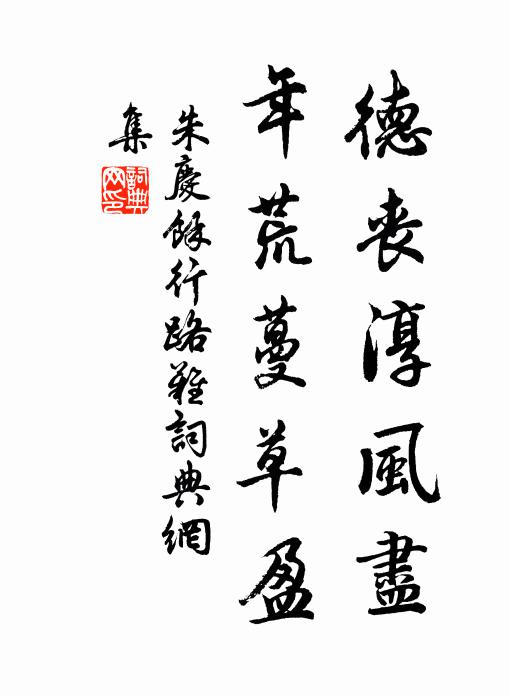 德喪淳風盡
年荒蔓草盈
朱慶餘行路難詞典網
集
詞典網印